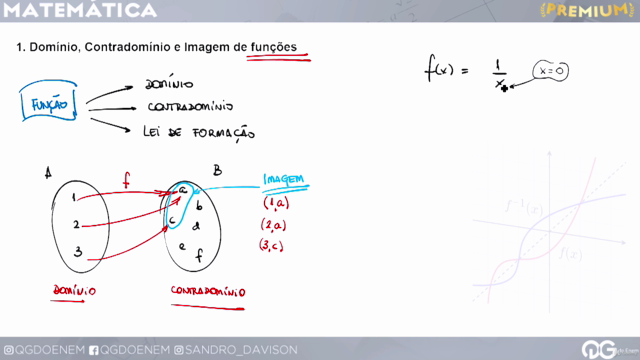 MATEMÁTICA
(PREMIUM)
1. Domínio, Contradomínio e Imagem de funções
f(x) = 1/x
x=0
FUNÇÃO
DOMÍNIO
CONTRADOMÍNIO
LEI DE FORMAÇÃO
A
f
B
IMAGEM
1
2
3
a
b
c
d
e
f
(1,a)
(2,a)
(3,c)
DOMÍNIO
CONTRADOMÍNIO
f⁻¹(x)
f(x)
@QGDOENEM
QGDOENEM
@SANDRO_DAVISON
QG